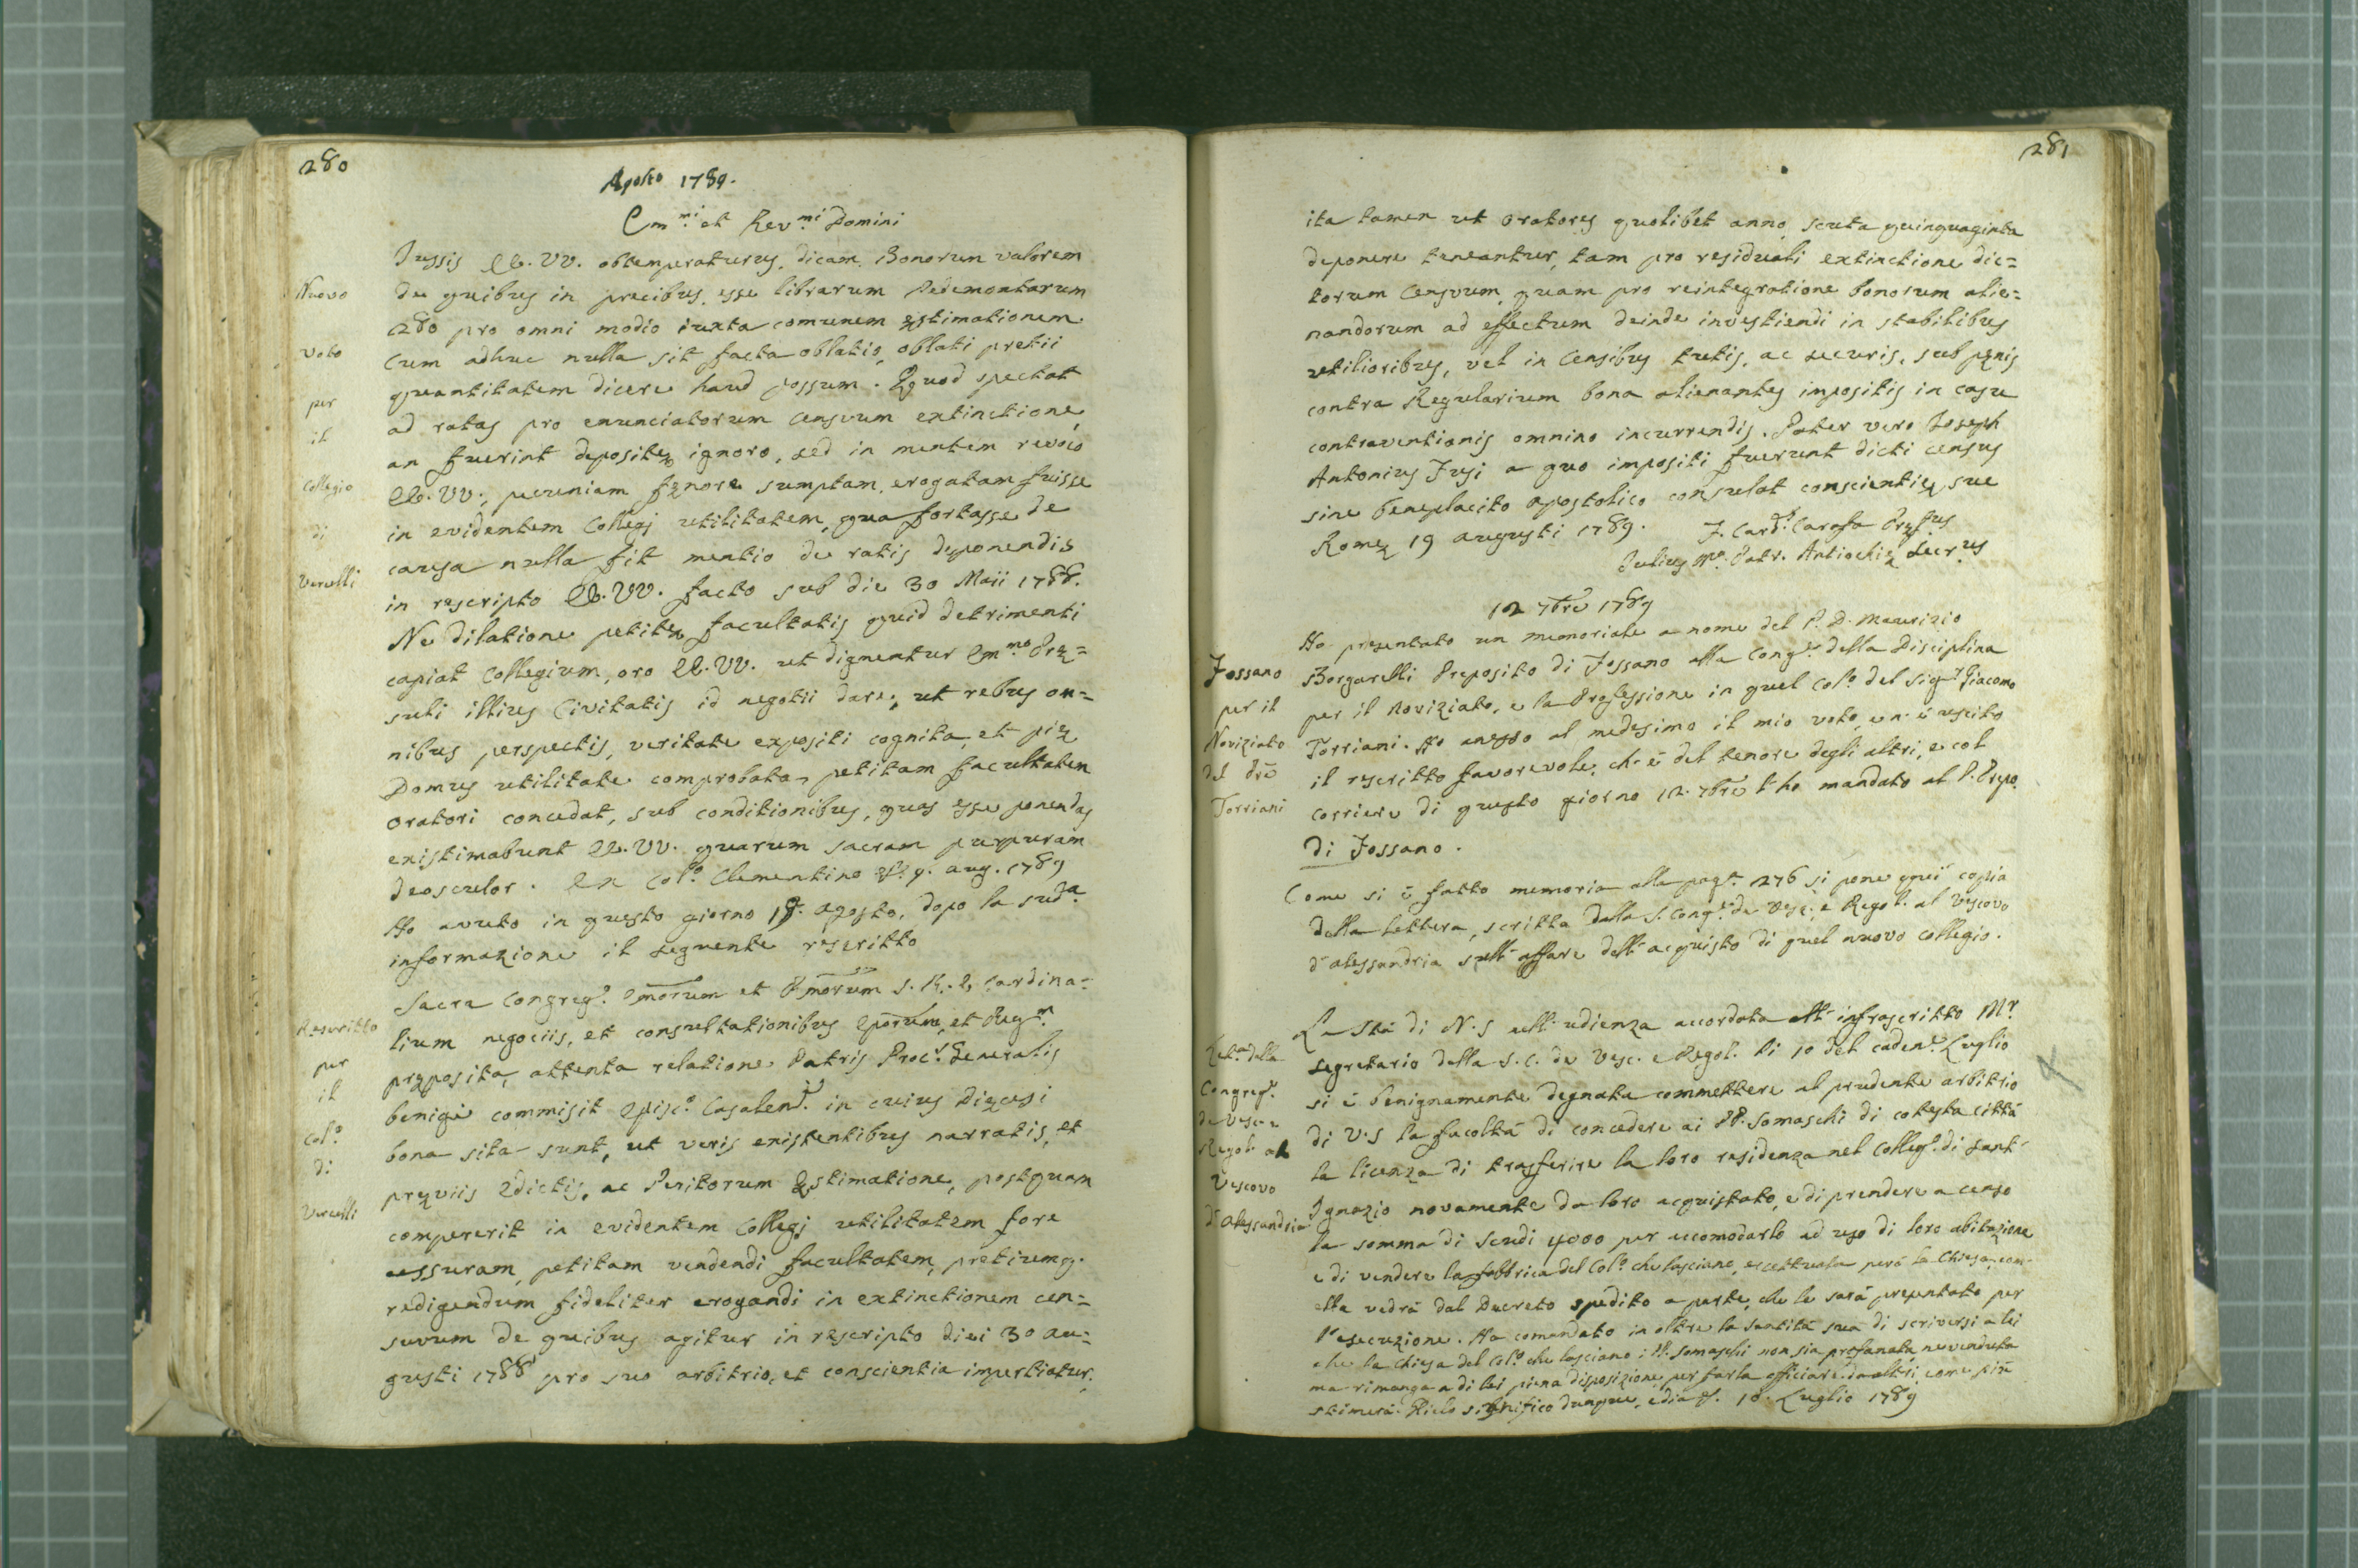 280
Agosto 1789.
Em.mi et Rev.mi Domini
Jussis EE. VV. obtemperaturus, dicam Bonorum valorem
Nuovo
de quibus in precibus, esse librarum Pedemontarum
280 pro omni modio iuxta comunem ęstimationem.
voto
Cum adhuc nulla sit facta oblatio, oblati pretii
quantitatem dicere haud possum. Quod spectat
per
ad ratas pro enunciatorum censuum extinctione,
il
an fuerint depositę ignoro, sed in mentem revoco
Collegio
EE. VV., pecuniam fęnore sumptam, erogatam fuisse
di
in evidentem Collegj utilitatem, qua fortasse de
Vercelli
causa nulla fit mentio de ratis deponendis
in rescripto EE. VV. facto sub die 30 Maii 1788.
Ne dilatione petitę facultatis quid detrimenti
capiat Collegium, oro EE. VV. ut dignentur Em.mo Prę=
suli illius Civitatis id negotii dare, ut rebus om=
nibus perspectis, veritate expositi cognita, et pię
Domus utilitate comprobata, petitam facultatem
Oratori concedat, sub conditionibus, quas esse ponendas
existimabunt EE. VV. quarum sacram purpuram
deosculor. Ex Col.o Clementino 9. aug. 1789
Ho avuto in questo giorno 19. agosto, dopo la sud.a
informazione il seguente rescritto
Sacra Congreg.e Emorum et Rmorum S. R. E. Cardina=
Rescritto
lium negociis, et consultationibus Eporum, et Reg.m
per
pręposita, attenta relatione Patris Proc.s Generalis
il
benigne commisit Episc.o Casalen.s in cuius Dięcesi
Col.o
bona sita sunt, ut veris existentibus narratis, et
di
pręviis Edictis, ac Peritorum ęstimatione, postquam
Vercelli
compererit in evidentem Collegj utilitatem fore
cessuram, petitam vendendi facultatem, pretiumq.
redigendum fideliter erogandi in extinctionem cen=
suum de quibus agitur in rescripto diei 30 au=
gusti 1788 pro suo arbitrio, et conscientia impertiatur,
281
ita tamen ut Oratores quolibet anno scuta quinquaginta
deponere teneantur, tam pro residuali extinctione dic=
torum Censuum, quam pro reintegratione bonorum alie=
nandorum ad effectum deinde investiendi in stabilibus
utilioribus, vel in Censibus tutis, ac securis, sub pęnis
contra Regularium bona alienantes impositis in casu
contraventionis omnino incurrendis. Pater vero Joseph
Antonius Jusi a quo impositi fuerunt dicti census
sine beneplacito apostolico consulat conscientię suę
Romę 19 augusti 1789. F. Card.l Carafa Pręf.us
Julius M.a Patr. Antiochię Secr.us
12 7bre 1789
Ho presentato un memoriale a nome del P. D. Maurizio
Fossano
Borgarelli Preposito di Fossano alla Cong.e della Disciplina
per il
per il Noviziato, e la Professione in quel Col.o del Sig.r Giacomo
Noviziato
Torriani. Ho anesso al medesimo il mio voto, e n'è uscito
del Prē
il rescritto favorevole, ch'è del tenore degli altri, e col
Torriani
corriere di questo giorno 12. 7bre l'ho mandato al P. Prepo.
di Fossano.
Come si è fatto memoria alla pag.a 276 si pone quì copia
della lettera, scritta dalla S. Cong.e de Vesc. e Regol. al Vescovo
d'alessandria sull'affare dell'acquisto di quel nuovo collegio.
La Stà di N. S nell'udienza accordata all'infrascritto Mr.
Lett.a della
segretario della S. C. de Vesc. e Regol. li 10 del caden.e Luglio
Congreg.e
si è benignamente degnata commettere al prudente arbitrio
de Vesc. e
di V. S la facoltà di concedere ai PP. Somaschi di cotesta città
Regol. al
la licenza di trasferire la loro residenza nel Colleg.o di Sant'
Vescovo
Ignazio novamente da loro acquistato, e di prendere a censo
d'Alessandria
la somma di Scudi 4000 per accomodarlo ad uso di loro abitazione
e di vendere la fabbrica del Col.o che lasciano, eccettuata però la Chiesa, com'
ella vedrà dal Decreto spedito a parte, che le sarà presentato per
l'esecuzione. Ha comandato in oltre la Santità sua di scriversi a lei
che la Chiesa del Col.o che lasciano i PP. Somaschi non sia profanata, ne venduta
ma rimanga a di lei piena disposizione per farla officiare da altri, come più
stimerà. Glielo significo dunque, e 18. Luglio 1789